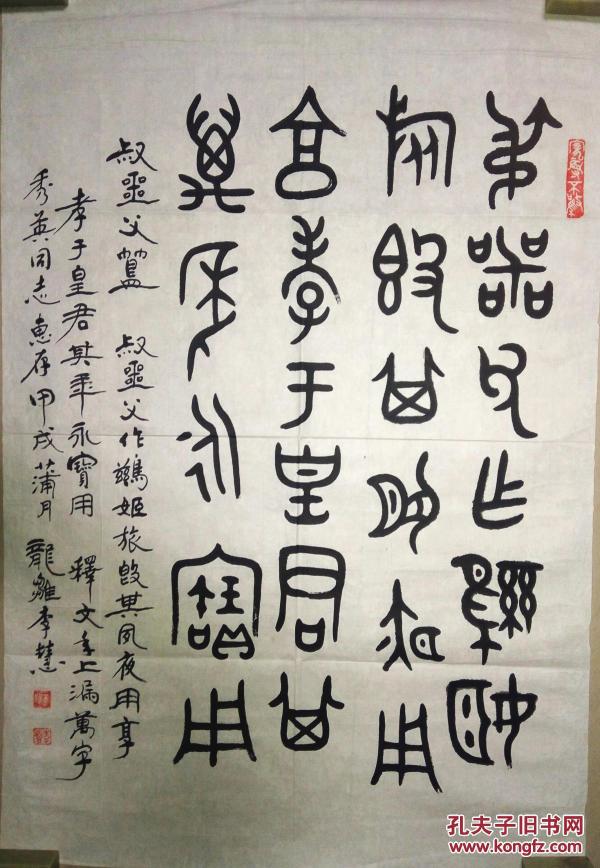 叔噩父作鷊姬
旅𣪘其夙夜用
享孝于皇君其
萬年永寶用
叔噩父簋 叔噩父作鷊姬旅𣪘其夙夜用享
孝于皇君其年永寶用 釋文年上漏萬字
秀英同志惠存甲戌蒲月 龍雛李慧
孔夫子旧书网
www.kongfz.com